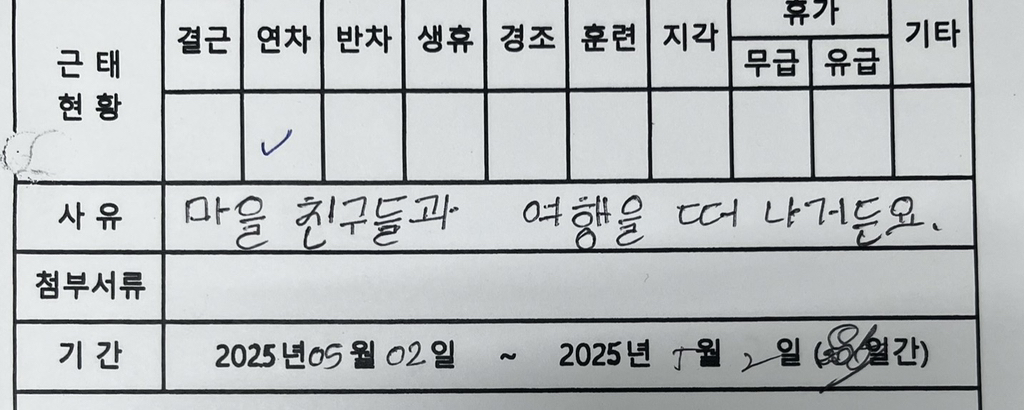 근태현황 결근 연차 반차 생휴 경조 훈련 지각 휴가 기타
무급 유급
✓
사유 마을 친구들과 여행을 떠나거든요.
첨부서류
기간 2025년 05월 02일 ~ 2025년 5월 2일 ( 일간)